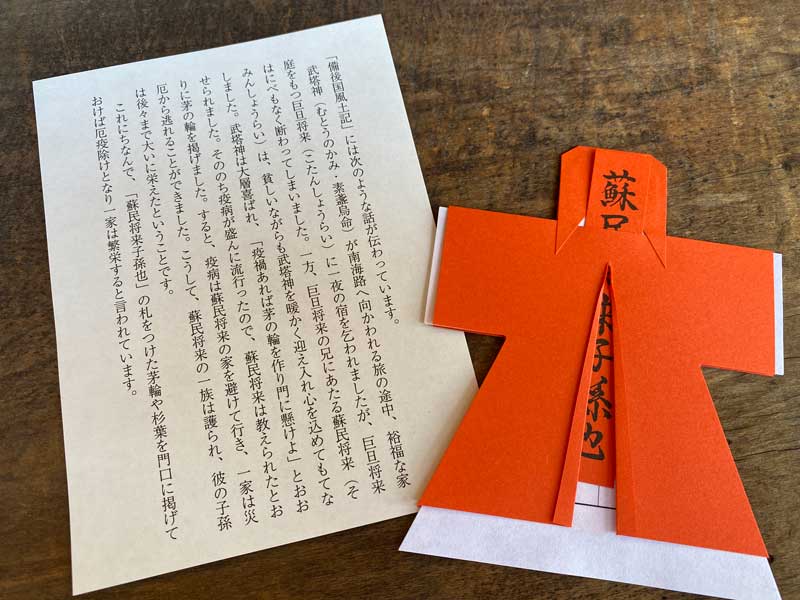 「備後国風土記」には次のような話が伝わっています。
武塔神（むとうのかみ・素盞烏命）が南海路へ向かわれる旅の途中、裕福な家
庭をもつ巨旦将来（こたんしょうらい）に一夜の宿を乞われましたが、巨旦将来
はにべもなく断わってしまいました。一方、巨旦将来の兄にあたる蘇民将来（そ
みんしょうらい）は、貧しいながらも武塔神を暖かく迎え入れ心を込めてもてな
しました。武塔神は大層喜ばれ、「疫禍あれば茅の輪を作り門に懸けよ」とおお
せられました。そののち疫病が盛んに流行ったので、蘇民将来は教えられたとお
りに茅の輪を掲げました。すると、疫病は蘇民将来の家を避けて行き、一家は災
厄から逃れることができました。こうして、蘇民将来の一族は護られ、彼の子孫
は後々まで大いに栄えたということです。
これにちなんで、「蘇民将来子孫也」の札をつけた茅輪や杉葉を門口に掲げて
おけば厄疫除けとなり一家は繁栄すると言われています。
蘇民 来子孫也